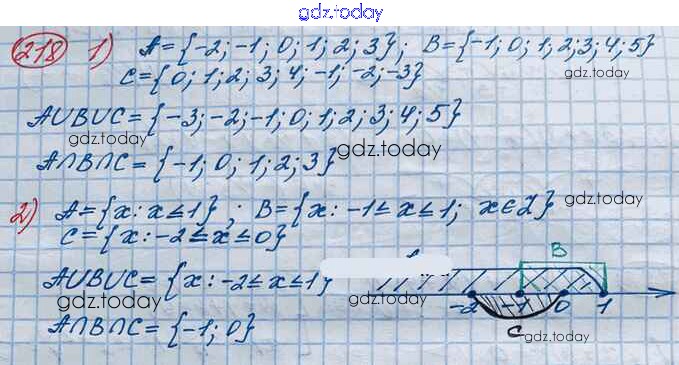 gdz.today
218 1) A={-2; -1; 0; 1; 2; 3}; B={-1; 0; 1; 2; 3; 4; 5}
C={0; 1; 2; 3; 4; -1; -2; -3}
gdz.today
A∪B∪C={-3; -2; -1; 0; 1; 2; 3; 4; 5}
gdz.today
gdz.today
A∩B∩C={-1; 0; 1; 2; 3}
2) A={x: x≤1}; B={x: -1≤x≤1; x∈Z}
gdz.today
C={x: -2≤x≤0}
B
A∪B∪C={x: -2≤x≤1}
gdz.today
gdz.today
-2 -1 0 1
A∩B∩C={-1; 0}
C
gdz.today